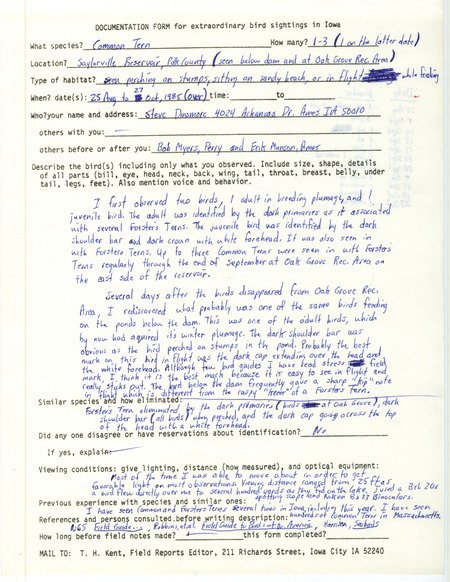 DOCUMENTATION FORM for extraordinary bird sightings in Iowa
What species? Common Tern How many? 1-3 (1 on the latter date)
Location? Saylorville Reservoir, Polk County (seen below dam and at Oak Grove Rec. Area)
Type of habitat? Seen perching on stumps, sitting on sandy beach, or in flight while feeding
When? date(s): 25 Aug to 27 Oct, 1985 (over) time: to
Who? your name and address: Steve Dinsmore 4024 Arkansas Dr. Ames IA 50010
others with you:
others before or after you: Bob Myers, Perry and Erik Munson, Ames
Describe the bird(s) including only what you observed. Include size, shape, details
of all parts (bill, eye, head, neck, back, wing, tail, throat, breast, belly, under
tail, legs, feet). Also mention voice and behavior.
I first observed two birds, 1 adult in breeding plumage, and 1
juvenile bird. The adult was identified by the dark primaries as it associated
with several Forsters Terns. The juvenile bird was identified by the dark
shoulder bar and dark crown with white forehead. It was also seen in
with Forsters Terns. Up to three Common Terns were seen in with Forsters
Terns regularly through the end of September at Oak Grove Rec. Area on
the east side of the reservoir.
Several days after the birds disappeared from Oak Grove Rec.
Area, I rediscovered what probably was one of the same birds feeding
on the ponds below the dam. This was one of the adult birds, which
by now had acquired its winter plumage. The dark shoulder bar was
obvious as the bird perched on stumps in the pond. Probably the best
mark on this bird in flight was the dark cap extending over the head and
the white forehead. Although few bird guides I have read stress field
mark, I think it is the best mark because it is easy to see in flight and
really sticks out. The bird below the dam frequently gave a sharp "kip" note
in flight which is different from the raspy of a Forsters Tern.
Similar species and how eliminated:
Forsters Tern eliminated by the dark primaries (birds at Oak Grove), dark
shoulder bar (all birds) when perched, and the dark cap going across the top
of the head with a white forehead.
Did any one disagree or have reservations about identification? No
If yes, explain
Viewing conditions: give lighting, distance (how measured), and optical equipment:
Most of the time I was able to move about in order to get
favorable light on most observations. Viewing distance ranged from 25 ft as
a bird flew directly over me to several hundred yards as they fed on the lake. I used a B+L 20x
spotting scope and 8x23 Binoculars.
Previous experience with species and similar ones:
I have seen Common and Forsters Terns several times in Iowa, including this year. I have seen
hundreds of Common Terns in Massachusetts.
References and persons consulted before writing description:
NGS Field Guide..., Robbins, etal Field Guide to Birds of N. America, Harrison, Seabirds
How long before field notes made? this form completed?
MAIL TO: T. H. Kent, Field Reports Editor, 211 Richards Street, Iowa City IA 52240